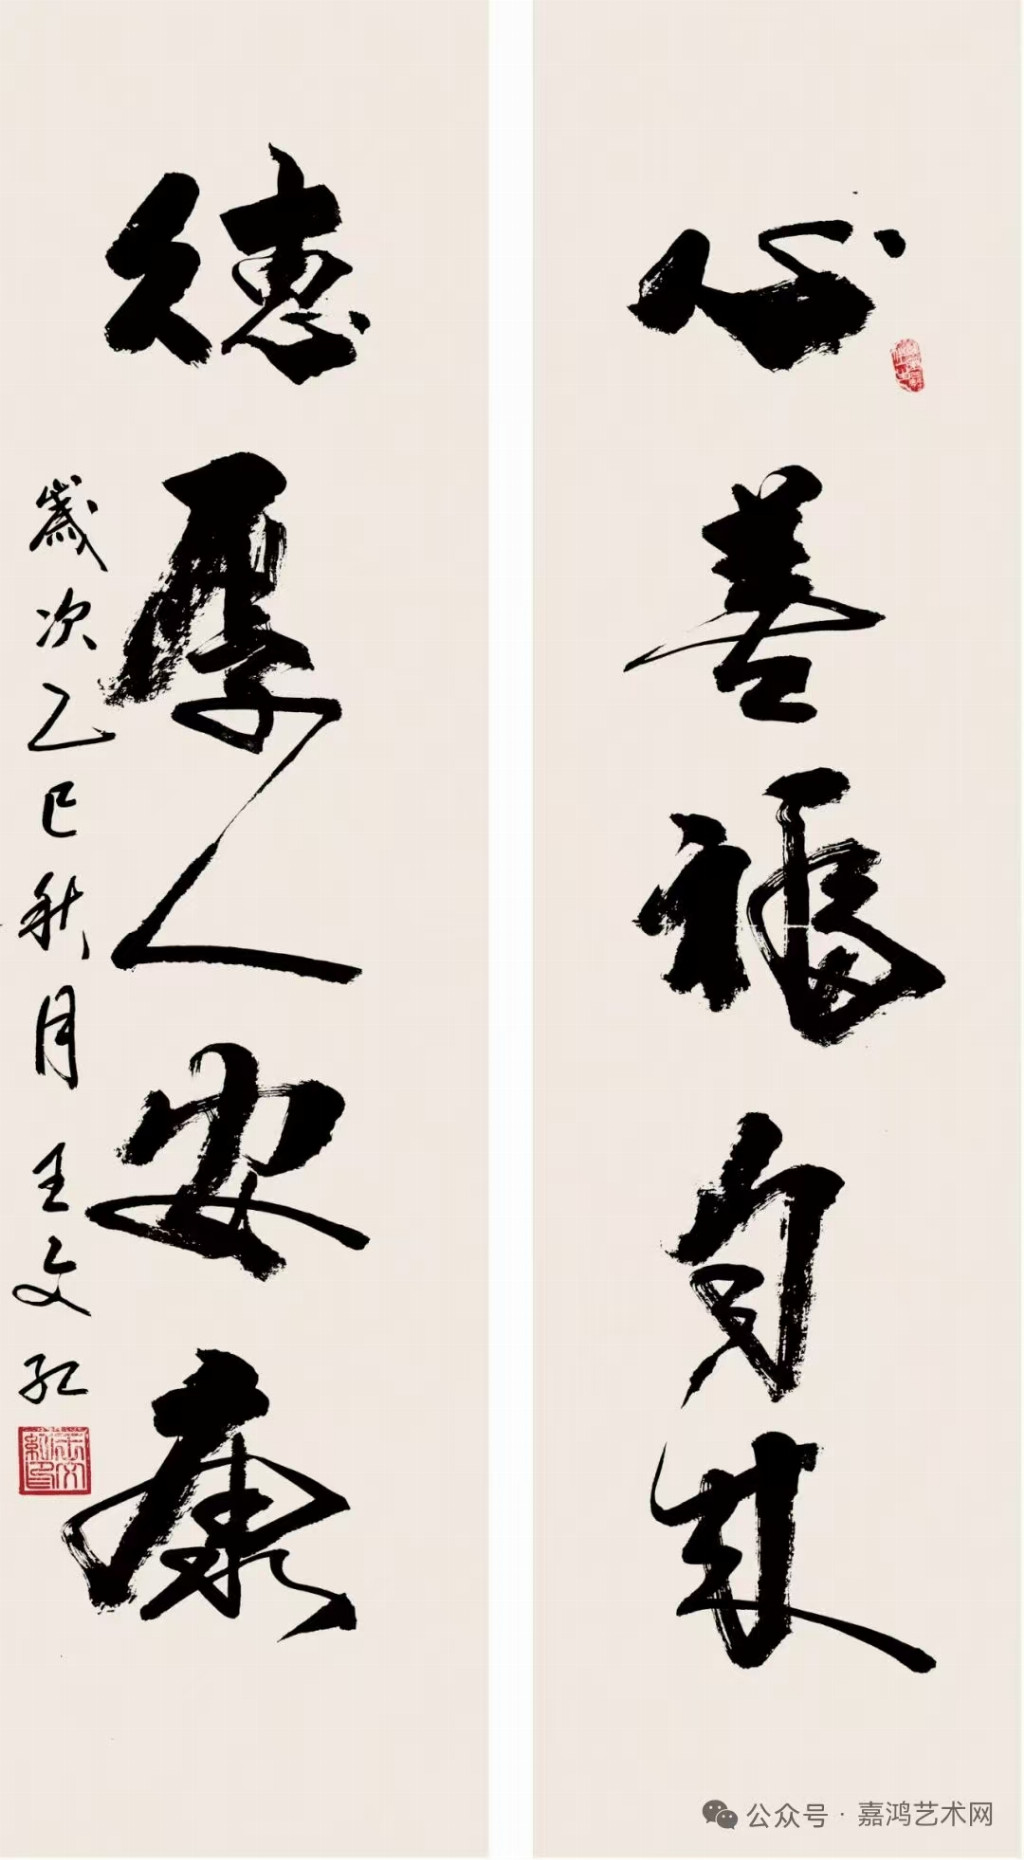 心善福自来
德厚人安康
岁次乙巳秋月王文红
公众号·嘉鸿艺术网